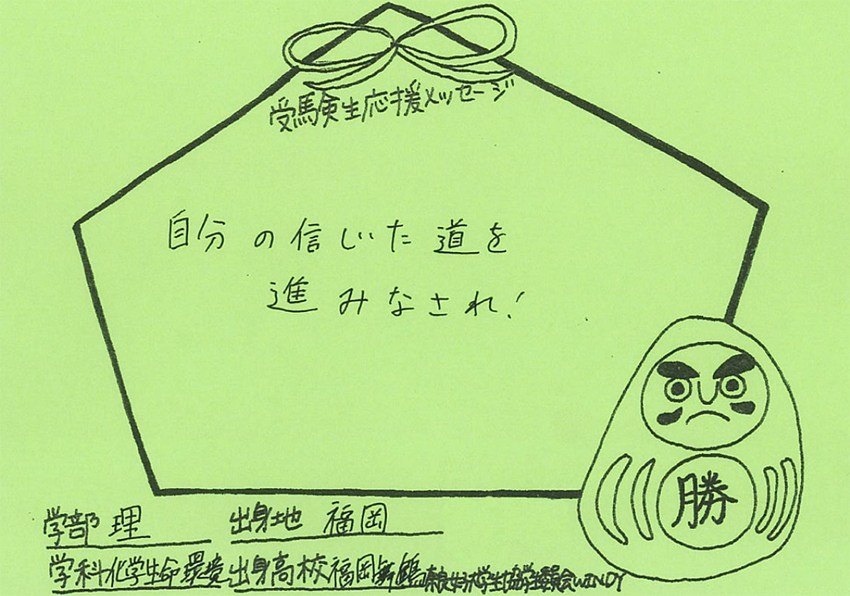 受験生応援メッセージ
自分の信じた道を
進みなされ!
勝
学部 理 出身地 福岡
学科 化学生命環境 出身高校 福岡舞鶴 奈良女子大学生協学生委員会WINDY